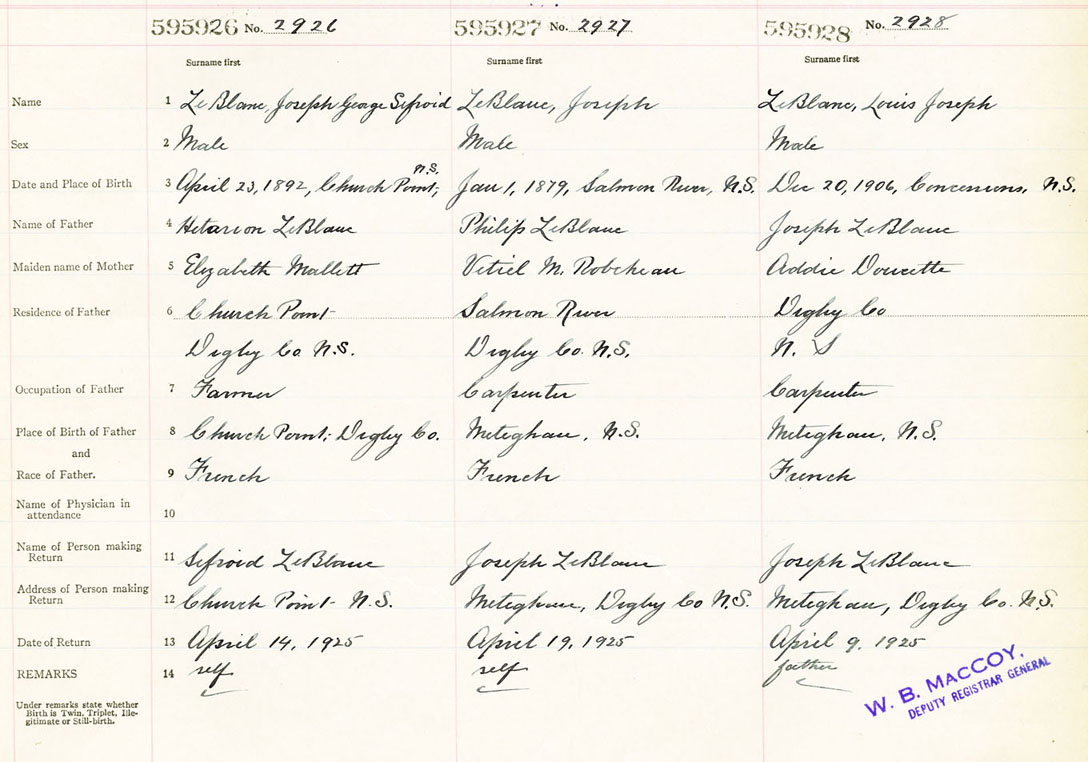 595926 No. 2926 595927 No. 2927 595928 No. 2928
Surname first Surname first Surname first
Name 1 LeBlanc, Joseph George Sifroid LeBlanc, Joseph LeBlanc, Louis Joseph
Sex 2 Male Male Male
N.S.
Date and Place of Birth 3 April 23, 1892, Church Point, Jan 1, 1879, Salmon River, N.S. Dec 20, 1906, Concessions, N.S.
Name of Father 4 LeBlanc Philip LeBlanc Joseph LeBlanc
Maiden name of Mother 5 Elizabeth Mallett M. Robicheau Addie Doucette
Residence of Father 6 Church Point Salmon River Digby Co
Digby Co. N.S. Digby Co. N.S. N. S
Occupation of Father 7 Farmer Carpenter Carpenter
Place of Birth of Father 8 Church Point, Digby Co. Meteghan, N.S. Meteghan, N.S.
and
Race of Father. 9 French French French
Name of Physician in
attendance 10
Name of Person making
Return 11 Sifroid LeBlanc Joseph LeBlanc Joseph LeBlanc
Address of Person making
Return 12 Church Point N.S. Meteghan, Digby Co N.S. Meteghan, Digby Co. N.S.
Date of Return 13 April 14, 1925 April 19, 1925 April 9, 1925
REMARKS 14 self self father
W. B. MACCOY,
DEPUTY REGISTRAR GENERAL
Under remarks state whether
Birth is Twin, Triplet, Ille-
gitimate or Still-birth.